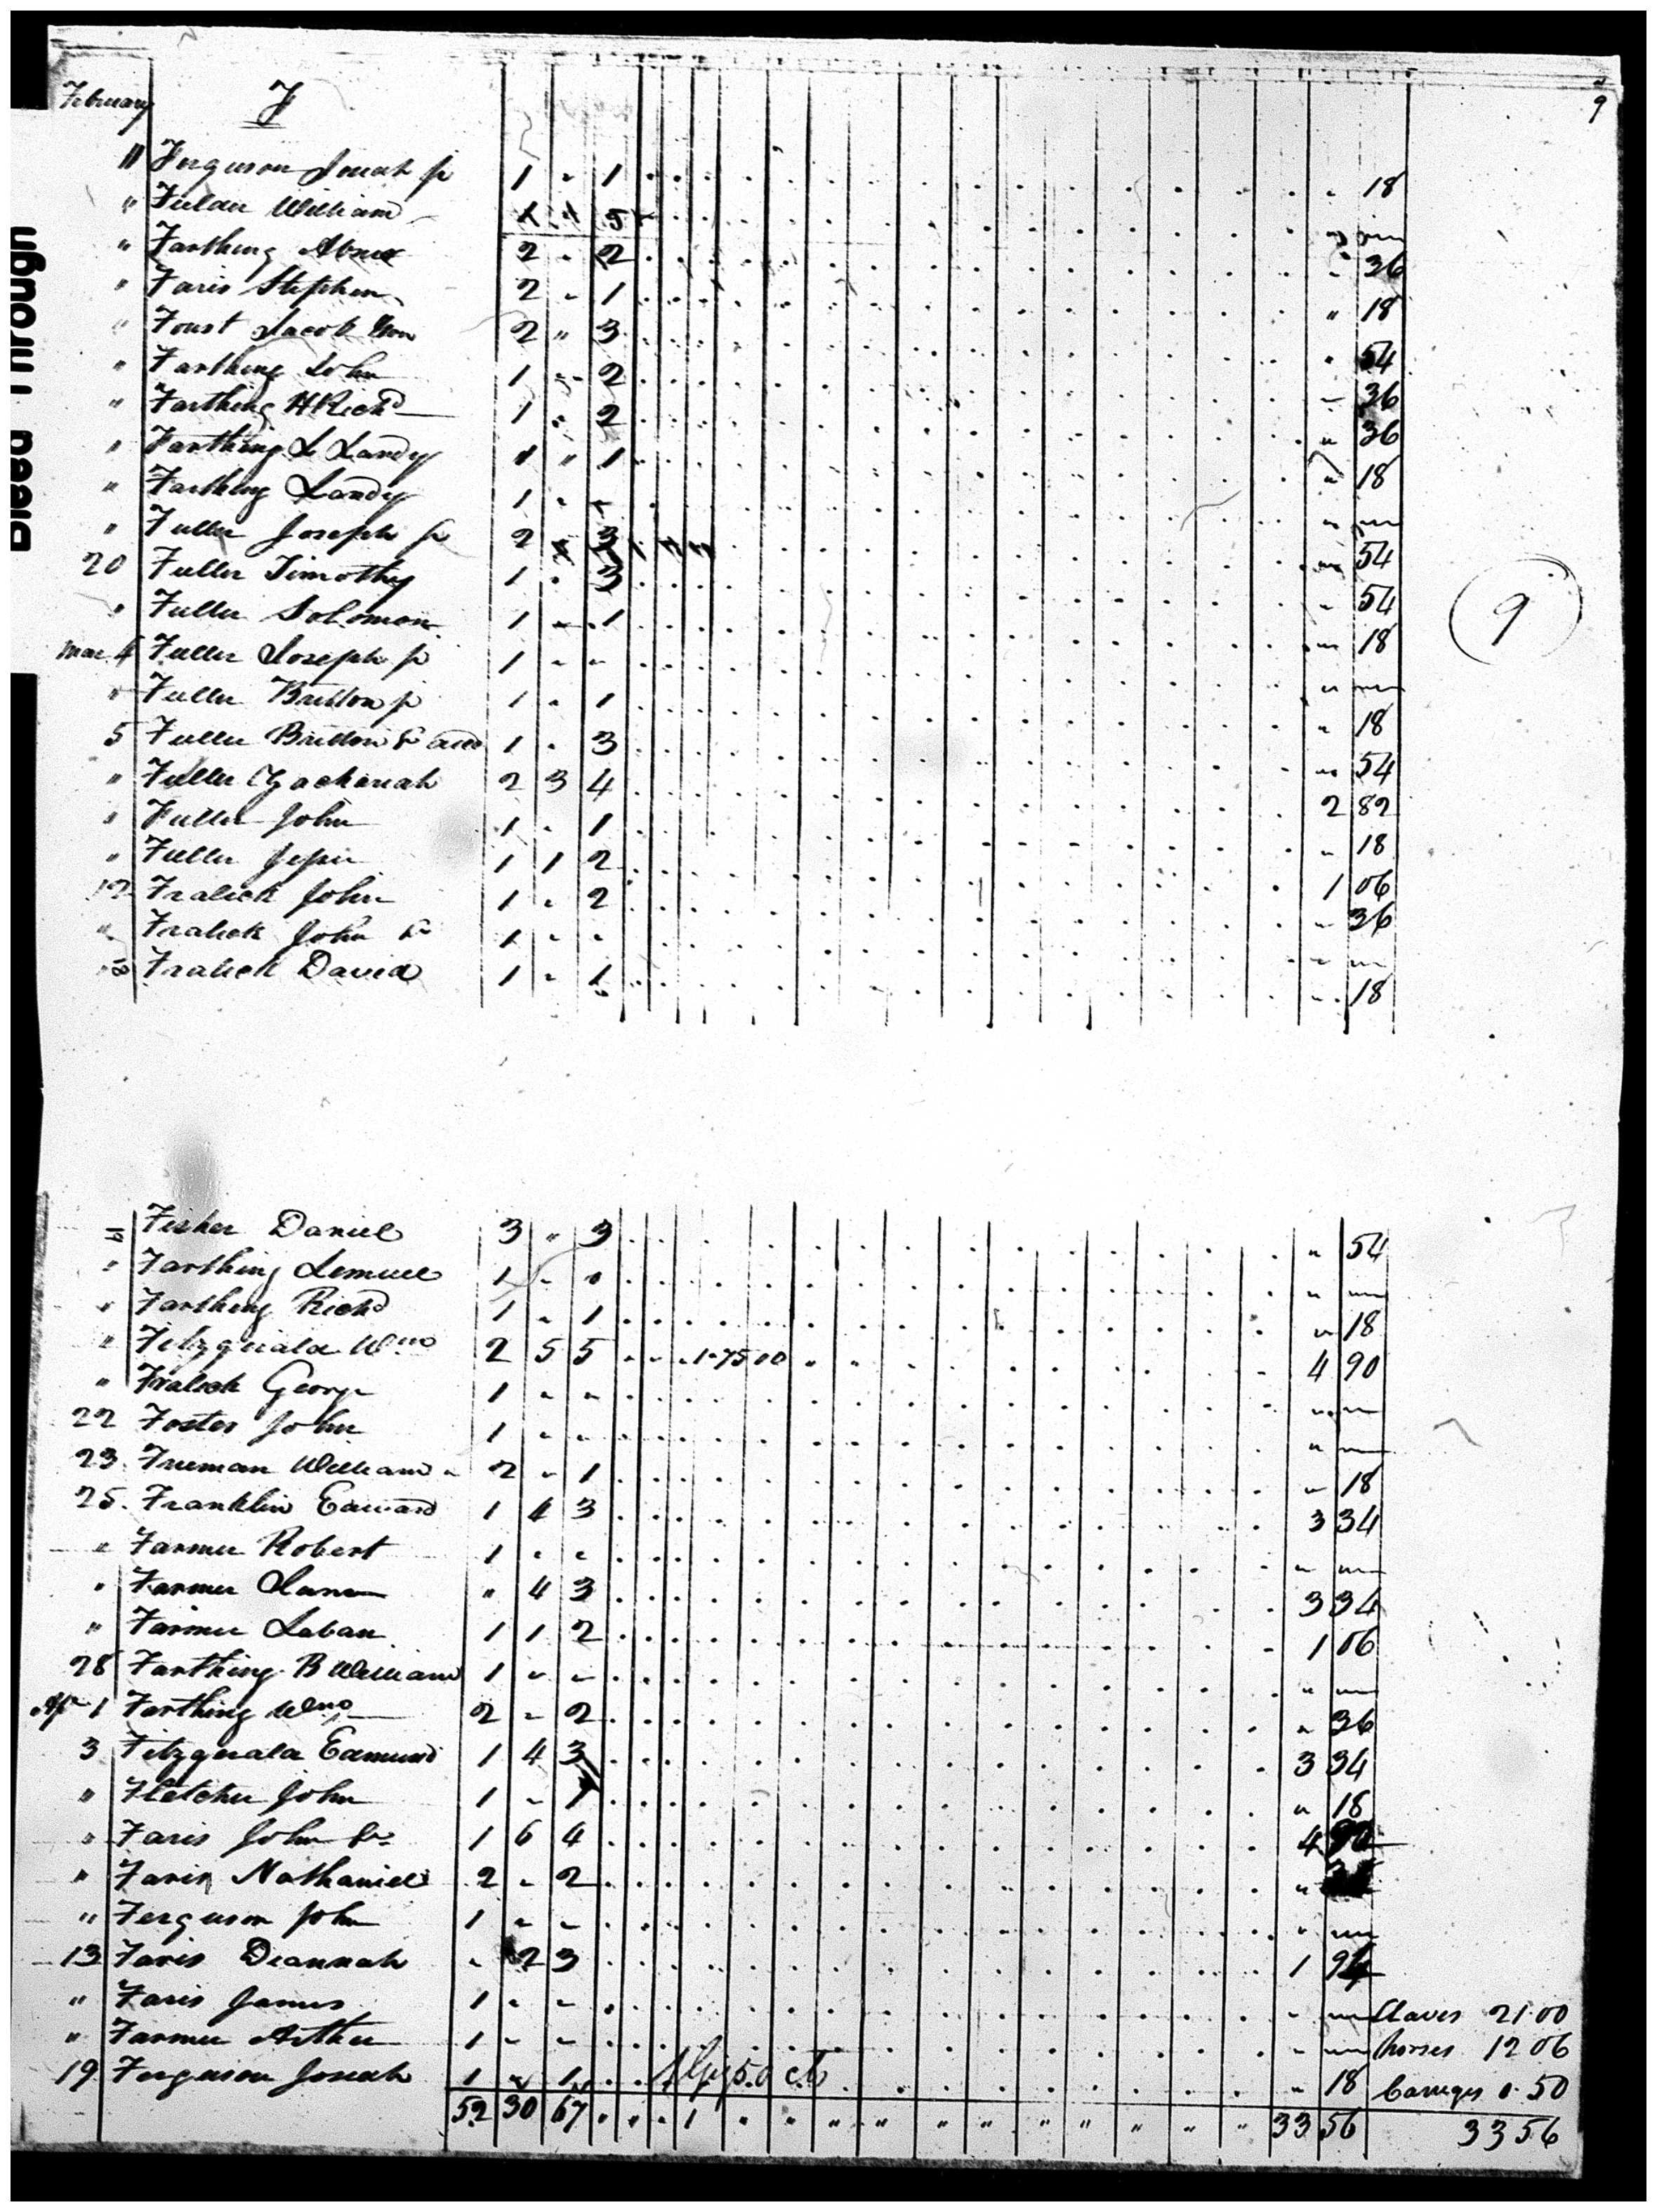 February F 9
11 Ferguson Josiah jr 1 " 1 " 18
" William
" Farthing Abner 2 " 2 " 36
" Faris Stephen 2 " 1 " 18
" Foust Jacob 2 " 3 " 54
" Farthing John 1 " 2 " 36
" Farthing H Richd 1 " 2 " 36
" Farthing L Landy 1 " 1 " 18
" Farthing Landy 1 " "
" Fuller Joseph 2 3 " 54
20 Fuller Timothy 1 " 3 " 54
" Fuller Solomon 1 " 1 " 18
9
Mar 4 Fuller Joseph jr 1 " "
" Fuller Britton jr 1 " 1 " 18
5 Fuller Britton 1 " 3 " 54
" Fuller Zachariah 2 3 4 2 82
" Fuller John 1 " 1 " 18
" Fuller Jesse 1 1 2 1 06
12 Fralick John 1 " 2 " 36
" Fralick John 1 " "
18 Fralick David 1 " 1 " 18
Fisher Daniel 3 " 3 " 54
" Farthing Lemuel 1 " "
" Farthing Richd 1 " 1 " 18
" Fitzgerald Wm 2 5 5 1 75 00 4 90
" Fralick George 1 " "
22 Foster John 1 " "
23 Freeman William 2 " 1 " 18
25 Franklin Edward 1 4 3 3 34
" Farmer Robert 1 " "
" Farmer " 4 3 3 34
" Farmer Laban 1 1 2 1 06
28 Farthing B William 1 " "
Apr 1 Farthing Wm 2 " 2 " 36
3 Fitzgerald Edmund 1 4 3 3 34
" Fletcher John 1 " 1 " 18
" Faris John Sr 1 6 4 4 90
" Faris Nathaniel 2 " 2 "
" Ferguson John 1 " "
13 Faris Deannah " 2 3 1 94
" Faris James 1 " " Slaves 21.00
" Farmer Arthur 1 " " horses 12 06
19 Ferguson Josiah 1 " 1 1 Gig 50 cts " 18 Carriages 0.50
52 30 67 " " " 1 " " " " " " " " " " " 33 56 33 56